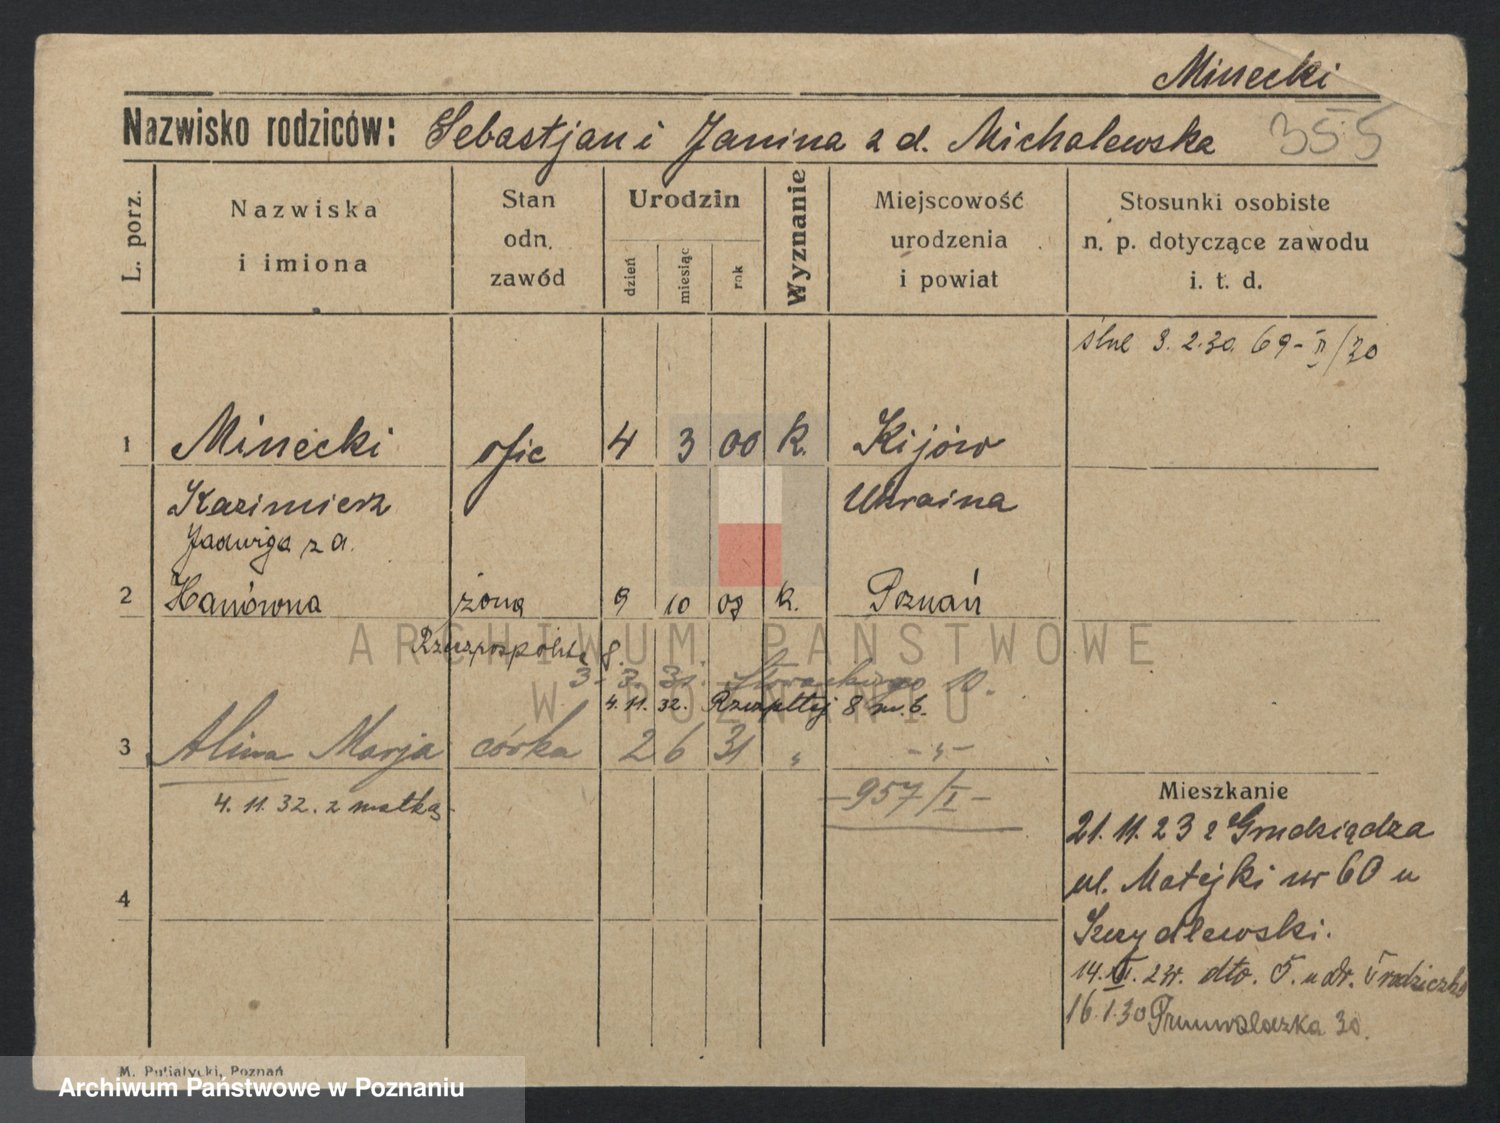 Minecki
Nazwisko rodziców: Sebastjan i Janina z d. Michalewska 355
L. porz.
Nazwiska
i imiona
Stan
odn.
zawód
Urodzin
dzień
miesiąc
rok
Wyznanie
Miejscowość
urodzenia
i powiat
Stosunki osobiste
n. p. dotyczące zawodu
i. t. d.
3. 2. 30. 69 - II/30
1 Minecki ofic 4 3 00 k. Kijów
Kazimierz Ukraina
Jadwiga z d.
2 Hanówna żona 9 10 k. Poznań
ARCHIWUM PAŃSTWOWE
W POZNANIU
3. 3. 31.
4. 11. 32. Rzeczpltej 8 m. 6.
3 Alina Marja córka 2 6 31 " - " -
4. 11. 32. z matką
- 957/I -
Mieszkanie
21. 11. 23 z Grudziądza
ul. Matejki nr 60 u
Szydlewski.
14. dto. 5. u dr.
16. 1. 30 Grunwaldzka 30.
4
M. Putiatycki, Poznań
Archiwum Państwowe w Poznaniu